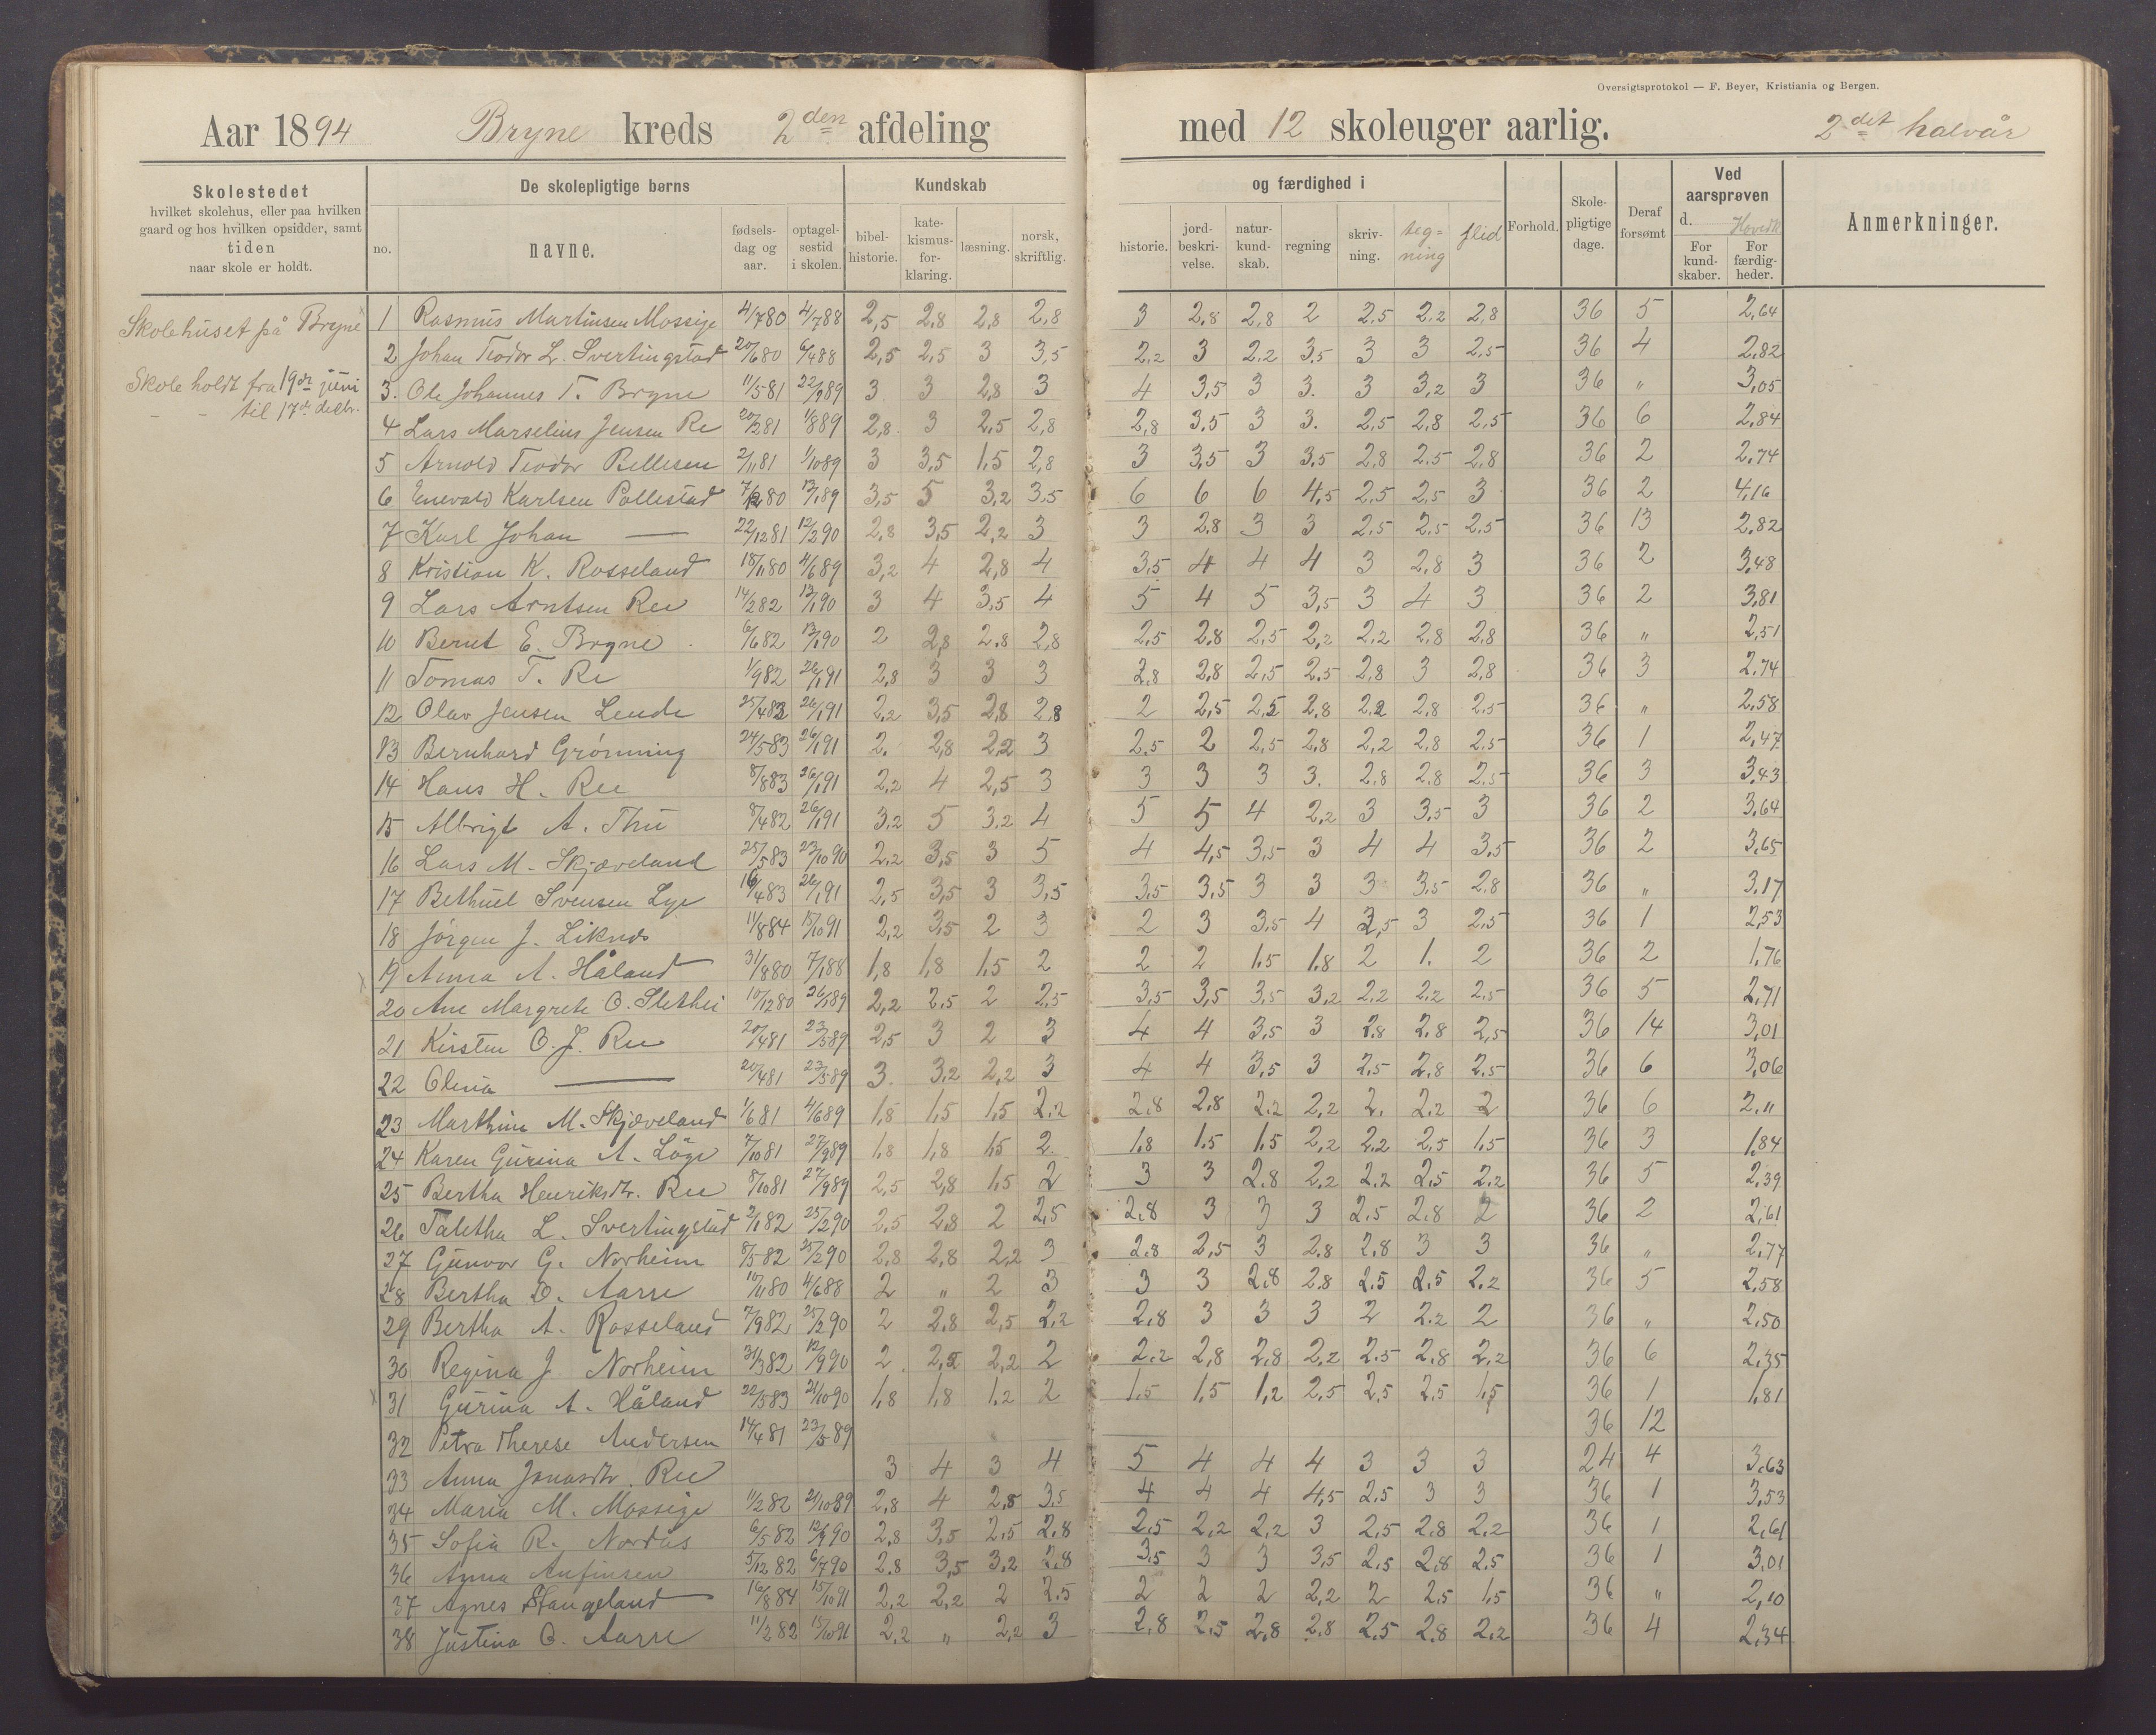 Oversigtsprotokol — F. Beyer, Kristiania og Bergen.
Aar 1894 Bryne kreds 2den afdeling med 12 skoleuger aarlig. 2det halvår
Skolestedet
hvilket skolehus, eller paa hvilken
gaard og hos hvilken opsidder, samt
tiden
naar skole er holdt.
De skolepligtige børns
no. navne. fødsels-dag og aar. optagel-sestid i skolen.
Kundskab og færdighed i
bibel-historie. kate-kismus-for-klaring. læsning. norsk, skriftlig. historie. jord-beskri-velse. natur-kund-skab. regning skriv-ning. teg=ning flid Forhold. Skole-pligtige dage. Deraf forsømt
Ved aarsprøven d. For kund-skaber. For færdig-heder.
Anmerkninger.
Skolehuset på Bryne
Skole holdt fra 19de juni
- - til 17de decbr.
1 Rasmus Martinsen Mossige 4/7 80 4/7 88 2,5 2,8 2,8 2,8 3 2,8 2,8 2 2,5 2,2 2,8 36 5 2,64
2 Johan Teodor L. Svertingstad 20/6 80 6/4 88 2,5 2,5 3 3,5 2,2 3 2,2 3,5 3 3 2,5 36 4 2,82
3. Ole Johannes T. Bryne 11/5 81 22/9 89 3 3 2,8 3 4 3,5 3 3. 3 3,2 3 36 " 3,05
4 Lars Marselius Jensen Re 20/2 81 1/8 89 2,8 3 2,5 2,8 2,8 3,5 3 3. 2,5 2,8 2,5 36 6 2,84
5 Arnold Teodor Bellesen 2/11 81 1/10 89 3 3,5 1,5 2,8 3 3,5 3 3,5 2,8 2,5 2,8 36 2 2,74
6 Enevald Karlsen Pollestad 7/12 80 13/1 89 3,5 5 3,2 3,5 6 6 6 4,5 2,5 2,5 3 36 2 4,16
7 Karl Johan — 22/12 81 12/2 90 2,8 3,5 2,2 3 3 2,8 3 3 2,5 2,5 2,5 36 13 2,82
8 Kristian K. Rosseland 18/1 80 4/6 89 3,2 4 2,8 4 3,5 4 4 4 3 2,8 3 36 2 3,48
9 Lars Arntsen Ree 14/2 82 13/1 90 3 4 3,5 4 5 4 5 3,5 3 4 3 36 2 3,81
10 Bernt E. Bryne 6/6 82 13/1 90 2 2,8 2,8 2,8 2,5 2,8 2,5 2,2 2,2 2,8 2,8 36 " 2,51
11 Tomas T. Re 1/9 82 26/1 91 2,8 3 3 3 2,8 2,8 2,5 2,5 2,8 3 2,8 36 3 2,74
12 Olav Jensen Lende 25/4 82 26/1 91 2,2 3,5 2,8 2,8 2 2,5 2,5 2,8 2,2 2,8 2,5 36 " 2,58
13 Bernhard Grønning 24/5 83 26/1 91 2. 2,8 2,2 3 2,5 2 2,5 2,8 2,2 2,8 2,5 36 1 2,47
14 Hans H. Ree 8/8 83 26/1 91 2,2 4 2,5 3 3 3 3 3. 2,8 2,8 2,5 36 3 3,43
15 Albrigt A. Thu 8/4 82 26/1 91 3,2 5 3,2 4 5 5 4 2,2 3 3,5 3 36 2 3,64
16 Lars M. Skjæveland 25/5 83 23/10 90 2,2 3,5 3 5 4 4,5 3,5 3 4 4 3,5 36 2 3,65
17 Bethuel Svensen Lye 16/4 83 26/1 91 2,5 3,5 3 3,5 3,5 3,5 3 3 3 3,5 2,8 36 " 3,17
18 Jörgen J. 11/8 84 15/10 91 2,2 3,5 2 3 2 3 3,5 4 2,5 3 2,5 36 1 2,53
19 Anna A. Håland 31/8 80 7/1 88 1,8 1,8 1,5 2 2 2 1,5 1,8 2 1. 2 36 2 1,76
20 Ane Margrete O. Slethei 10/12 80 26/1 89 2,2 2,5 2 2,5 3,5 3,5 3,5 3,2 2,2 2,2 2,5 36 5 2,71
21 Kirsten O. J. Ree 20/4 81 23/5 89 2,5 3 2 3 4 4 3,5 3 2,8 2,8 2,5 36 14 3,01
22 Olina — 20/4 81 23/5 89 3. 3,2 2,2 3 4 4 3,5 3 2,5 2,8 2,5 36 6 3,06
23 Marthine M. Skjæveland 1/6 81 4/6 89 1,8 1,5 1,5 2,2 2,8 2,8 2,2 2,2 2. 2,2 2 36 6 2,11
24 Karen Gurina A. Löge 7/10 81 27/9 89 1,8 1,8 1,5 2. 1,8 1,5 1,5 2,2 2,2 2,5 1,5 36 3 1,84
25 Bertha Henriksdtr. Ree 8/10 81 27/9 89 2,5 2,8 1,5 2 3 3 2,8 2,2 2,2 2,5 2,2 36 5 2,39
26 Taletha L. Svertingstad 2/1 82 25/2 90 2,5 2,8 2 2,5 2,8 3 3 3 2,5 2,8 2 36 2 2,61
27 Gunvor G. Norheim 8/5 82 25/2 90 2,8 2,8 2,2 3 2,8 2,5 3 2,8 2,8 3 3 36 " 2,77
28 Bertha O. Aarre 10/1 80 4/6 88 2 " 2 3 3 3 2,8 2,8 2,5 2,5 2,2 36 5 2,58
29 Bertha A. Rosseland 7/9 82 25/2 90 2 2,8 2,5 2,2 2,8 3 3 3 2 2,2 2 36 " 2,50
30 Regina J. Norheim 31/3 82 12/9 90 2 2,5 2,2 2 2,2 2,8 2,8 2,2 2,5 2,8 2,2 36 6 2,35
31 Gurina A. Håland 22/5 83 21/10 90 1,8 1,8 1,2 2 1,5 1,5 1,2 2,5 2,5 2,5 1,5 36 1 1,81
32 Petra Therese Andersen 14/4 81 23/5 89 36 12
33 Anna Jonasdtr. Ree 3 4 3 4 5 4 4 4 3 3 3 24 4 3,63
34 Maria M. Mossige 11/2 82 21/10 89 2,8 4 2,8 3,5 4 4 4 4,5 2,5 3 3 36 1 3,53
35 Sofia R. Nordås 6/5 82 12/9 90 2,8 3,5 2,5 2,8 2,5 2,2 2,2 3 2,5 2,8 2,2 36 1 2,61
36 Anna Anfinsen 5/12 82 6/7 90 2,8 3,5 3,2 2,8 3,5 3 3 3,5 2,5 2,8 2,5 36 1 3,01
37 Agnes Stangeland 16/8 84 15/10 91 2,2 2,2 2 2,5 2 2 2 2,2 2 2,5 1,5 36 " 2,10
38 Justina O. Aarre 11/2 82 15/10 91 2,2 " 2,2 3 2,8 2,5 2,8 2,8 2,5 2,8 2,2 36 4 2,34